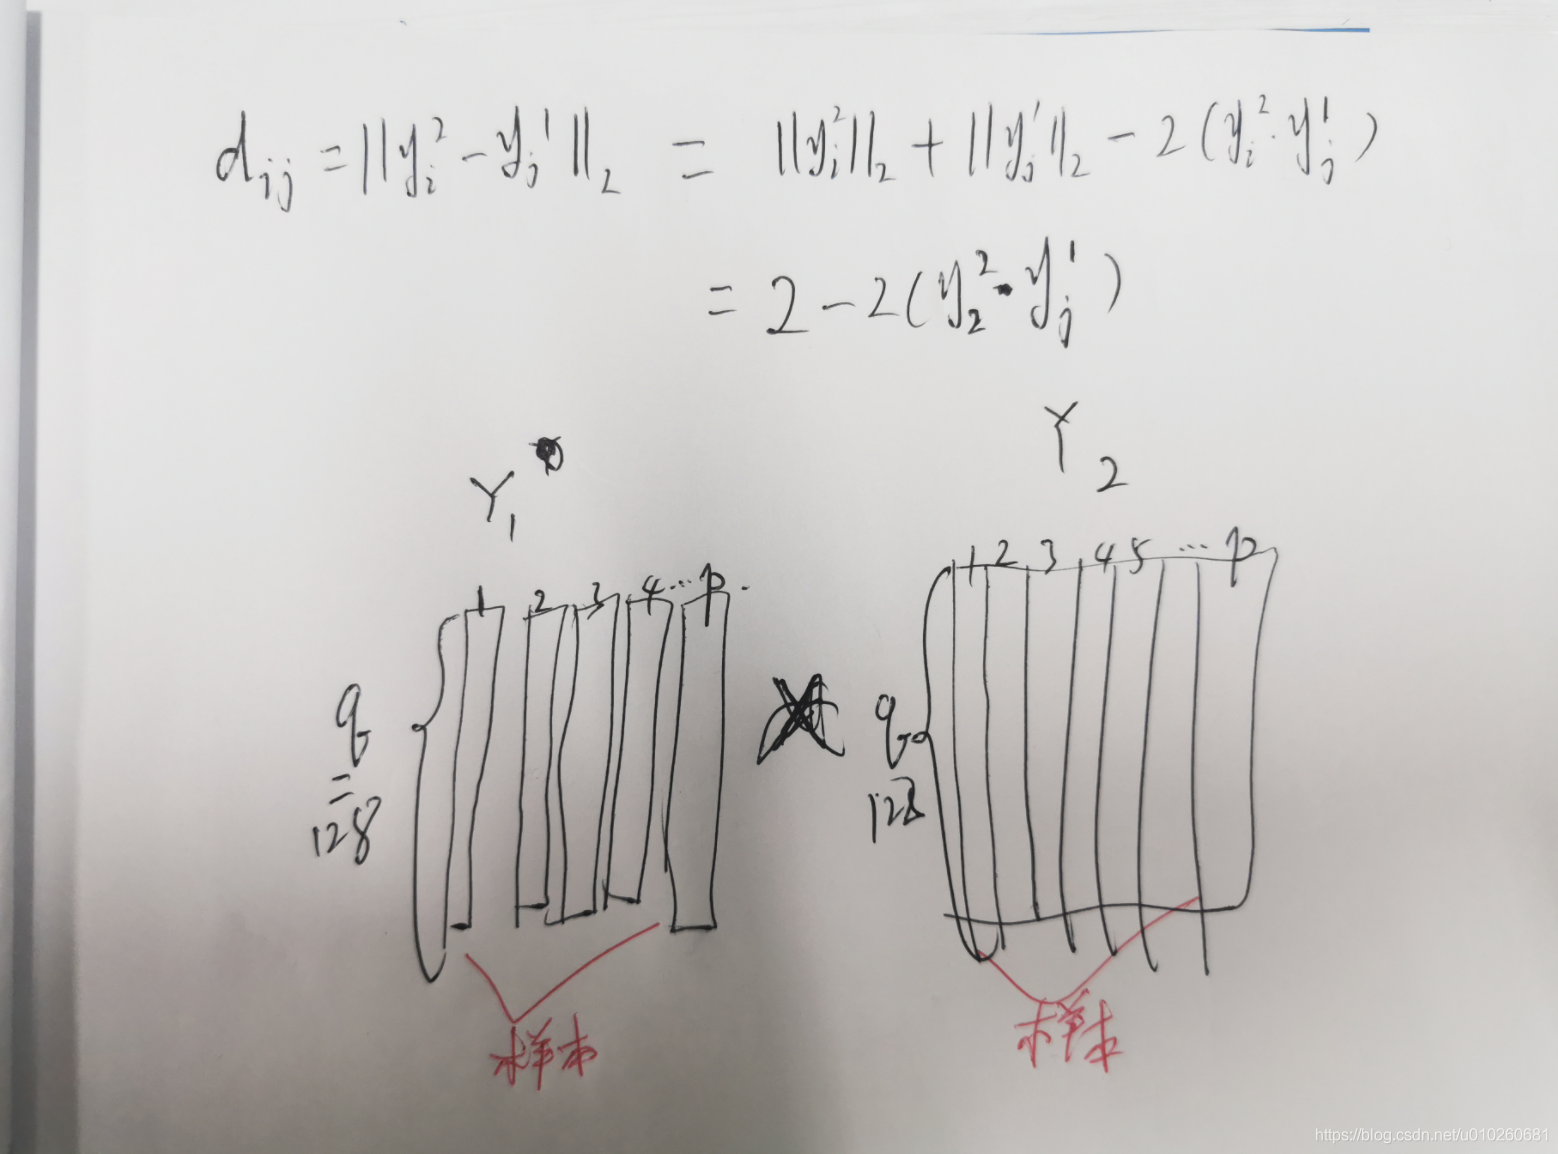 d_{ij} = ||y_i^2 - y_j^1||_2 = ||y_i^2||_2 + ||y_j^1||_2 - 2(y_i^2 · y_j^1)
= 2 - 2(y_2^2 · y_j^1)
Y_1
Y_2
1 2 3 4 ... p
1 2 3 4 5 ... p
q = 128
q 128
样本
样本
https://blog.csdn.net/u010260681